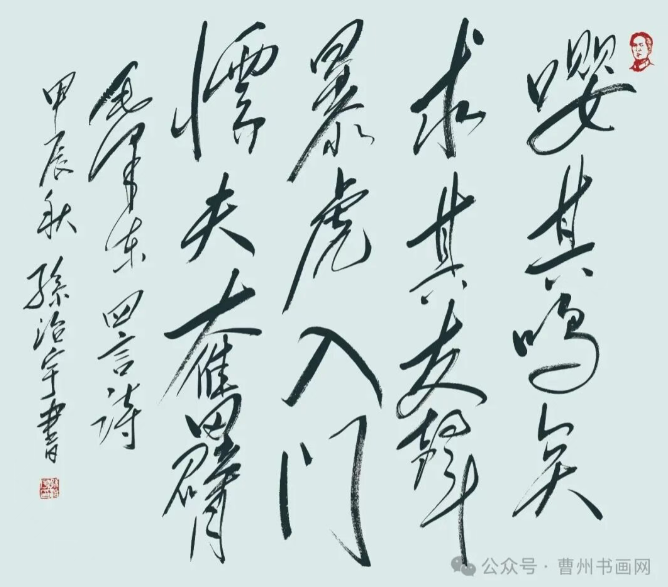 嘤其鸣矣
求其友聲
暴虎入门
懦夫奮臂
毛泽东四言诗
甲辰秋 孫治宇書
公众号 · 曹州书画网